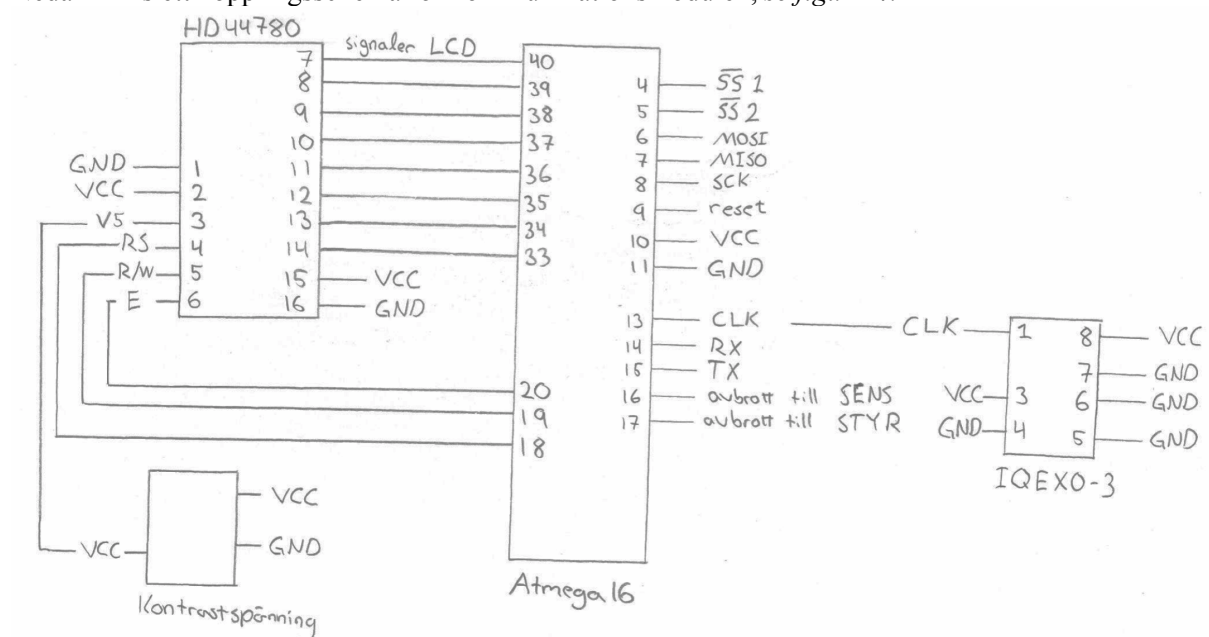 HD44780
signaler LCD
7
8
9
10
11
12
13
14
15 VCC
16 GND
GND 1
VCC 2
V5 3
RS 4
R/W 5
E 6
40
39
38
37
36
35
34
33
20
19
18
4 SS 1
5 SS 2
6 MOSI
7 MISO
8 SCK
9 reset
10 VCC
11 GND
13 CLK
14 RX
15 TX
16 avbrott till SENS
17 avbrott till STYR
Atmega16
CLK 1
VCC 3
GND 4
8 VCC
7 GND
6 GND
5 GND
IQEXO-3
VCC
GND
VCC
Kontrastspänning